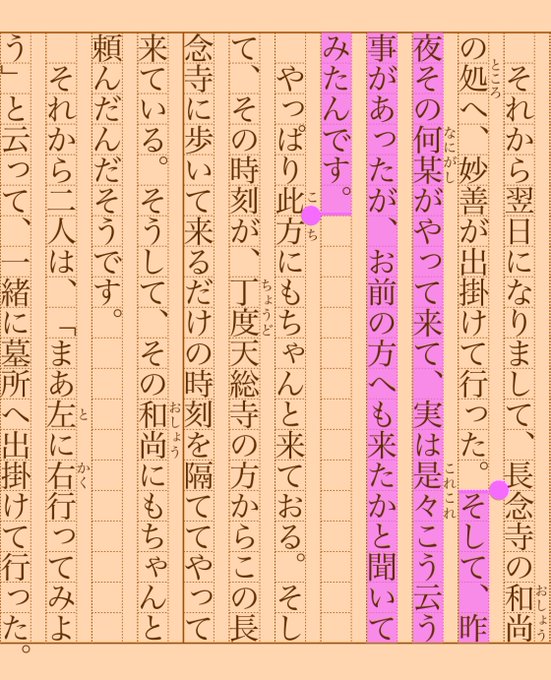 それから翌日になりまして、長念寺の和尚
の処へ、妙善が出掛けて行った。そして、昨
夜その何某がやって来て、実は是々こう云う
事があったが、お前の方へも来たかと聞いて
みたんです。
やっぱり此方にもちゃんと来ておる。そし
て、その時刻が、丁度天総寺の方からこの長
念寺に歩いて来るだけの時刻を隔ててやって
来ている。そうして、その和尚にもちゃんと
頼んだんだそうです。
それから二人は、「まあ左に右行ってみよ
う」と云って、一緒に墓所へ出掛けて行った。